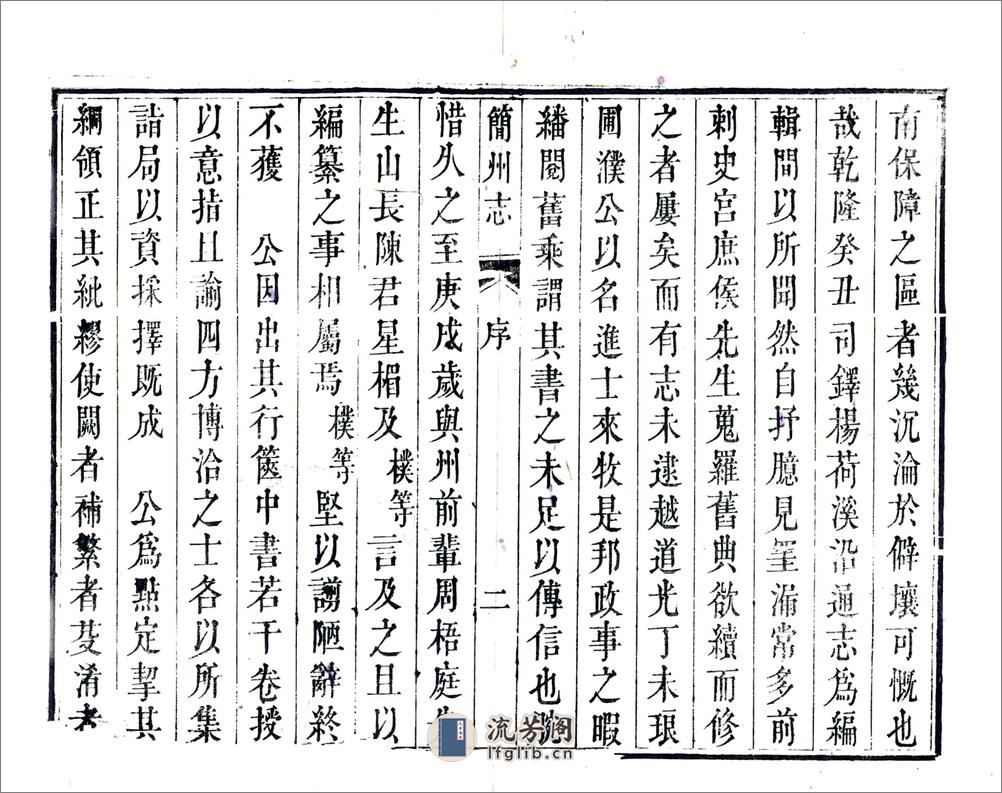 南保障之區者幾沉淪於僻壤可慨也
哉乾隆癸丑司鐸楊荷溪沿通志爲編
輯間以所聞然自抒臆見罣漏常多前
刺史宫庶侯先生蒐羅舊典欲續而修
之者屢矣而有志未逮越道光丁未琅
圃濮公以名進士來牧是邦政事之暇
繙閱舊乘謂其書之未足以傳信也
簡州志 序 二
惜久之至庚戌歲與州前輩周梧庭
生山長陳君星楣及樸等言及之且以
編纂之事相屬焉樸等堅以謭陋辭終
不獲 公因出其行篋中書若干卷授
以意掿且諭四方博洽之士各以所集
詣局以資採擇既成 公爲點定挈其
綱領正其紕繆使闕者補繁者芟淆者
流芳阁
lfglib.cn